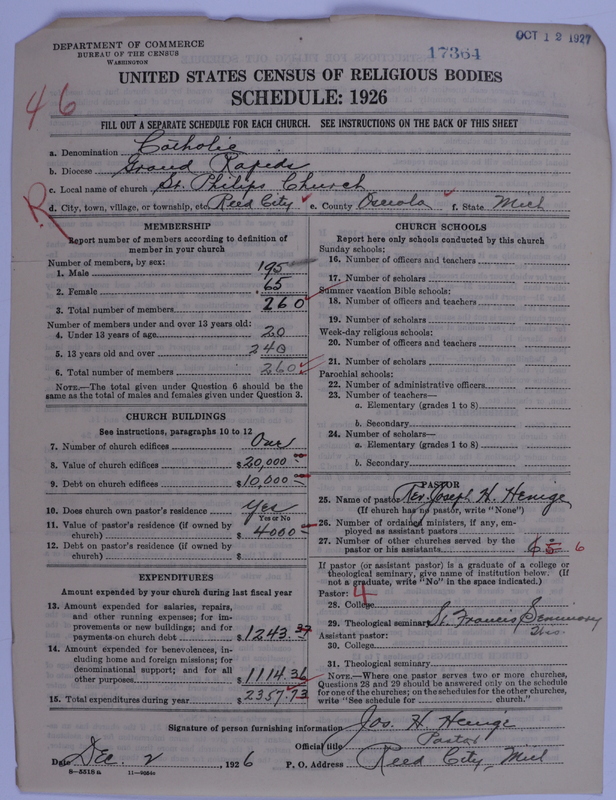 DEPARTMENT OF COMMERCE
BUREAU OF THE CENSUS
WASHINGTON
OCT 12 1927
17364
UNITED STATES CENSUS OF RELIGIOUS BODIES
SCHEDULE: 1926
46
R
FILL OUT A SEPARATE SCHEDULE FOR EACH CHURCH. SEE INSTRUCTIONS ON THE BACK OF THIS SHEET
a. Denomination Catholic
b. Diocese Grand Rapids
c. Local name of church St. Philips Church
d. City, town, village, or township, etc. Reed City e. County Osceola f. State Mich
MEMBERSHIP
Report number of members according to definition of
member in your church
Number of members, by sex:
1. Male 195
2. Female 65
3. Total number of members 260
Number of members under and over 13 years old:
4. Under 13 years of age 20
5. 13 years old and over 240
6. Total number of members 260
NOTE.—The total given under Question 6 should be the
same as the total of males and females given under Question 3.
CHURCH BUILDINGS
See instructions, paragraphs 10 to 12
7. Number of church edifices One
8. Value of church edifices $20,000
9. Debt on church edifices $10,000
10. Does church own pastor's residence Yes
Yes or No
11. Value of pastor's residence (if owned by
church) $4000
12. Debt on pastor's residence (if owned by
church) $
EXPENDITURES
Amount expended by your church during last fiscal year
13. Amount expended for salaries, repairs,
and other running expenses; for im-
provements or new buildings; and for
payments on church debt $1243.37
14. Amount expended for benevolences, in-
cluding home and foreign missions; for
denominational support; and for all
other purposes $1114.36
15. Total expenditures during year $2357.73
CHURCH SCHOOLS
Report here only schools conducted by this church
Sunday schools:
16. Number of officers and teachers
17. Number of scholars
Summer vacation Bible schools:
18. Number of officers and teachers
19. Number of scholars
Week-day religious schools:
20. Number of officers and teachers
21. Number of scholars
Parochial schools:
22. Number of administrative officers
23. Number of teachers—
a. Elementary (grades 1 to 8)
b. Secondary
24. Number of scholars—
a. Elementary (grades 1 to 8)
b. Secondary
PASTOR
25. Name of pastor Rev. Joseph H. Henige
(If church has no pastor, write "None")
26. Number of ordained ministers, if any, em-
ployed as assistant pastors
27. Number of other churches served by the
pastor or his assistants 6 5 6
If pastor (or assistant pastor) is a graduate of a college or
theological seminary, give name of institution below. (If
not a graduate, write "No" in the space indicated.)
Pastor: 4
28. College
29. Theological seminary St. Francis Seminary
Wis.
Assistant pastor:
30. College
31. Theological seminary
NOTE.—Where one pastor serves two or more churches,
Questions 28 and 29 should be answered only on the schedule
for one of the churches; on the schedules for the other churches,
write "See schedule for church."
Signature of person furnishing information Jos. H. Henige
Official title Pastor
Date Dec. 2, 1926 P. O. Address Reed City, Mich